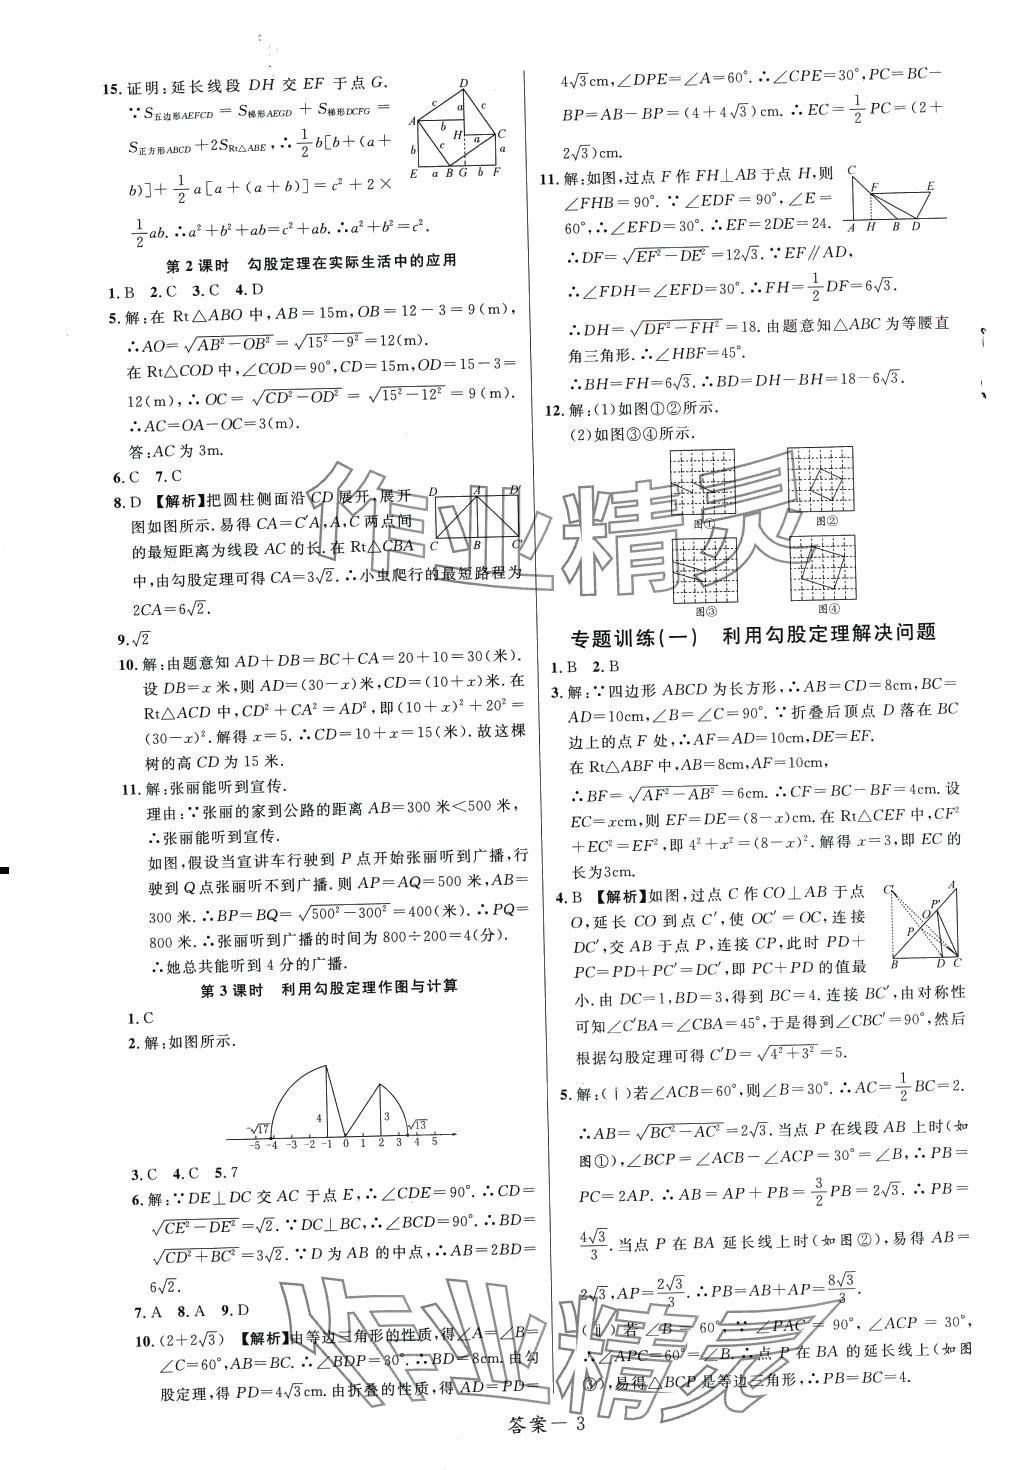 15.证明:延长线段 DH 交 EF 于点 G.
∵S五边形AEFCD=S梯形AEGD+S梯形DCFG=
S正方形ABCD+2S Rt△ABE,∴1/2 b[b+(a+
b)]+1/2 a[a+(a+b)]=c²+2×
1/2 ab.∴a²+b²+ab=c²+ab.∴a²+b²=c².
第2课时 勾股定理在实际生活中的应用
1.B 2.C 3.C 4.D
5.解:在 Rt△ABO 中,AB=15m,OB=12-3=9(m),
∴AO=√(AB²-OB²)=√(15²-9²)=12(m).
在 Rt△COD 中,∠COD=90°,CD=15m,OD=15-3=
12(m),∴OC=√(CD²-OD²)=√(15²-12²)=9(m).
∴AC=OA-OC=3(m).
答:AC 为 3m.
6.C 7.C
8.D 【解析】把圆柱侧面沿 CD 展开,展开
图如图所示.易得 CA=C′A,A,C 两点间
的最短距离为线段 AC 的长.在 Rt△CBA
中,由勾股定理可得 CA=3√2.∴小虫爬行的最短路程为
2CA=6√2.
9.√2
10.解:由题意知 AD+DB=BC+CA=20+10=30(米).
设 DB=x 米,则 AD=(30-x)米,CD=(10+x)米.在
Rt△ACD 中,CD²+CA²=AD²,即(10+x)²+20²=
(30-x)².解得 x=5.∴CD=10+x=15(米).故这棵
树的高 CD 为 15 米.
11.解:张丽能听到宣传.
理由:∵张丽的家到公路的距离 AB=300 米<500 米,
∴张丽能听到宣传.
如图,假设当宣讲车行驶到 P 点开始张丽听到广播,行
驶到 Q 点张丽听不到广播.则 AP=AQ=500 米,AB=
300 米.∴BP=BQ=√(500²-300²)=400(米).∴PQ=
800 米.∴张丽听到广播的时间为 800÷200=4(分).
∴她总共能听到 4 分的广播.
第3课时 利用勾股定理作图与计算
1.C
2.解:如图所示.
4 3
-√17 √13
-5 -4 -3 -2 -1 0 1 2 3 4 5
3.C 4.C 5.7
6.解:∵DE⊥DC 交 AC 于点 E,∴∠CDE=90°.∴CD=
√(CE²-DE²)=√2.∵DC⊥BC,∴∠BCD=90°.∴BD=
√(CD²+BC²)=3√2.∵D 为 AB 的中点,∴AB=2BD=
6√2.
7.A 8.A 9.D
10.(2+2√3) 【解析】由等边三角形的性质,得∠A=∠B=
∠C=60°,AB=BC.∴∠BDP=30°.∴BD=8cm.由勾
股定理,得 PD=4√3cm.由折叠的性质,得 AD=PD=
4√3cm,∠DPE=∠A=60°.∴∠CPE=30°,PC=BC-
BP=AB-BP=(4+4√3)cm.∴EC=1/2 PC=(2+
2√3)cm.
11.解:如图,过点 F 作 FH⊥AB 于点 H,则
∠FHB=90°.∵∠EDF=90°,∠E=
60°,∴∠EFD=30°.∴EF=2DE=24.
∴DF=√(EF²-DE²)=12√3.∵EF∥AD,
∴∠FDH=∠EFD=30°.∴FH=1/2 DF=6√3.
∴DH=√(DF²-FH²)=18.由题意知△ABC 为等腰直
角三角形.∴∠HBF=45°.
∴BH=FH=6√3.∴BD=DH-BH=18-6√3.
12.解:(1)如图①②所示.
(2)如图③④所示.
图① 图②
图③ 图④
专题训练(一) 利用勾股定理解决问题
1.B 2.B
3.解:∵四边形 ABCD 为长方形,∴AB=CD=8cm,BC=
AD=10cm,∠B=∠C=90°.∵折叠后顶点 D 落在 BC
边上的点 F 处,∴AF=AD=10cm,DE=EF.
在 Rt△ABF 中,AB=8cm,AF=10cm,
∴BF=√(AF²-AB²)=6cm.∴CF=BC-BF=4cm.设
EC=xcm,则 EF=DE=(8-x)cm.在 Rt△CEF 中,CF²
+EC²=EF²,即 4²+x²=(8-x)².解得 x=3,即 EC 的
长为3cm.
4.B 【解析】如图,过点 C 作 CO⊥AB 于点
O,延长 CO 到点 C′,使 OC′=OC,连接
DC′,交 AB 于点 P,连接 CP,此时 PD+
PC=PD+PC′=DC′,即 PC+PD 的值最
小.由 DC=1,BD=3,得到 BC=4.连接 BC′,由对称性
可知∠C′BA=∠CBA=45°,于是得到∠CBC′=90°,然后
根据勾股定理可得 C′D=√(4²+3²)=5.
5.解:(ⅰ)若∠ACB=60°,则∠B=30°.∴AC=1/2 BC=2.
∴AB=√(BC²-AC²)=2√3.当点 P 在线段 AB 上时(如
图①),∠BCP=∠ACB-∠ACP=30°=∠B,∴PB=
PC=2AP.∴AB=AP+PB=3/2 PB=2√3.∴PB=
4√3/3.当点 P 在 BA 延长线上时(如图②),易得 AB=
2√3,AP=2√3/3.∴PB=AB+AP=8√3/3.
(ⅱ)若∠B=60°,∵∠PAC=90°,∠ACP=30°,
∴∠APC=60°=∠B.∴点 P 在 BA 的延长线上(如图
③),易得△BCP 是等边三角形,∴PB=BC=4.
答案－3
作业精灵
作业精灵